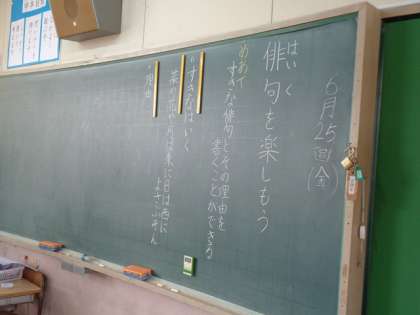 6月25日(金)
はいく
俳句を楽しもう
めあて
すきな俳句とその理由を
書くことができる
すきなはいく
菜の花や月は東に日は西に
よさぶそん
理由